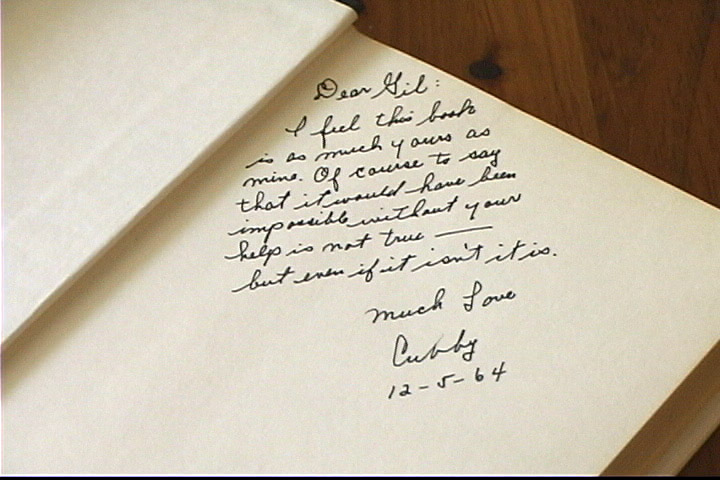 Dear Gil:
I feel this book
is as much yours as
mine. Of course to say
that it would have been
impossible without your
help is not true —
but even if it isn't it is.
Much Love
Cubby
12-5-64